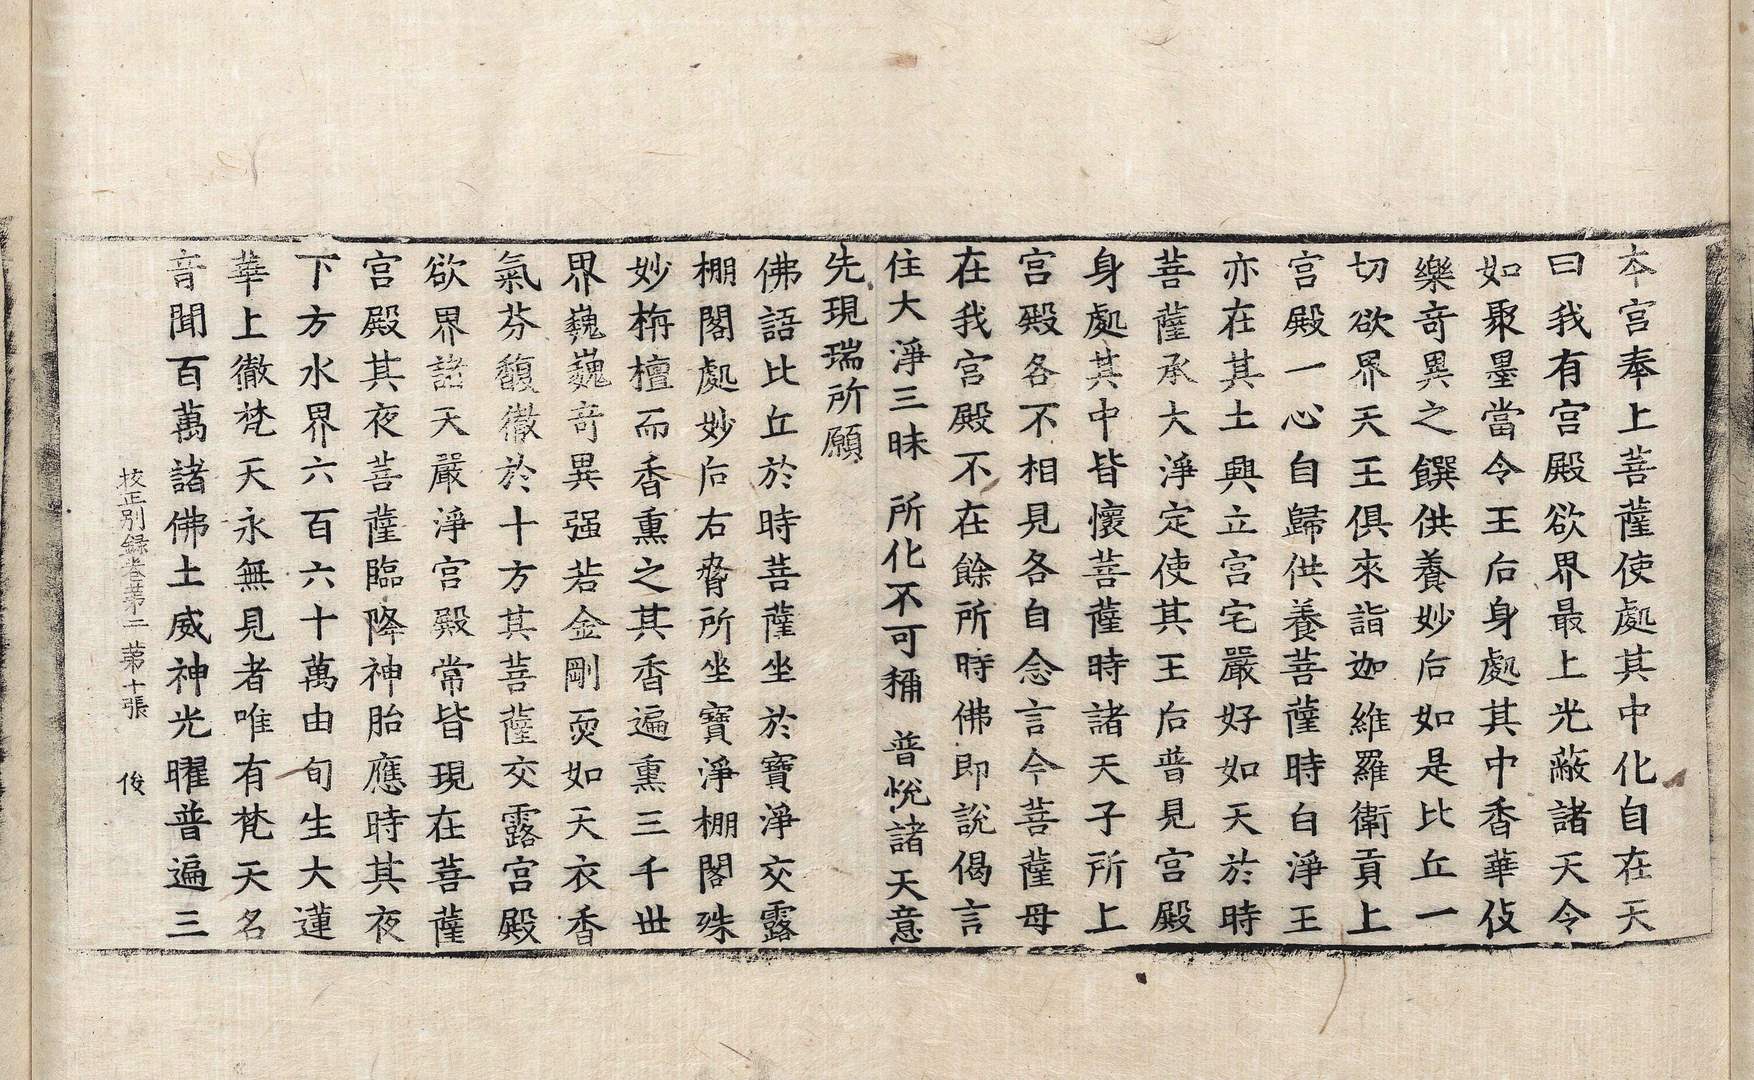 本宮奉上菩薩使處其中化自在天
曰我有宮殿欲界最上光蔽諸天令
如聚墨當令王后身處其中香華伎
樂奇異之饌供養妙后如是比丘一
切欲界天王俱來詣迦維羅衛貢上
宮殿一心自歸供養菩薩時白淨王
亦在其土興立宮宅嚴好如天於時
菩薩承大淨定使其王后普見宮殿
身處其中皆懷菩薩時諸天子所上
宮殿各不相見各自念言今菩薩母
在我宮殿不在餘所時佛即說偈言
住大淨三昧　所化不可稱　普悅諸天意
先現瑞所願
佛語比丘於時菩薩坐於寶淨交露
棚閣處妙后右脅所坐寶淨棚閣殊
妙栴檀而香熏之其香遍熏三千世
界巍巍奇異强若金剛耎如天衣香
氣芬馥徹於十方其菩薩交露宮殿
欲界諸天嚴淨宮殿常皆現在菩薩
宮殿其夜菩薩臨降神胎應時其夜
下方水界六百六十萬由旬生大蓮
華上徹梵天永無見者唯有梵天名
音聞百萬諸佛土威神光曜普遍三
校正別録卷苐二　苐十張　俊